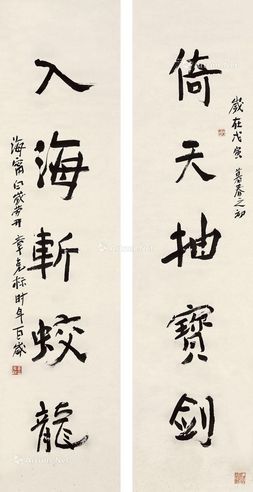 歲在戊寅暮春之初
倚天抽寶劍
入海斬蛟龍
海甯百歲堂章克标时年百歲